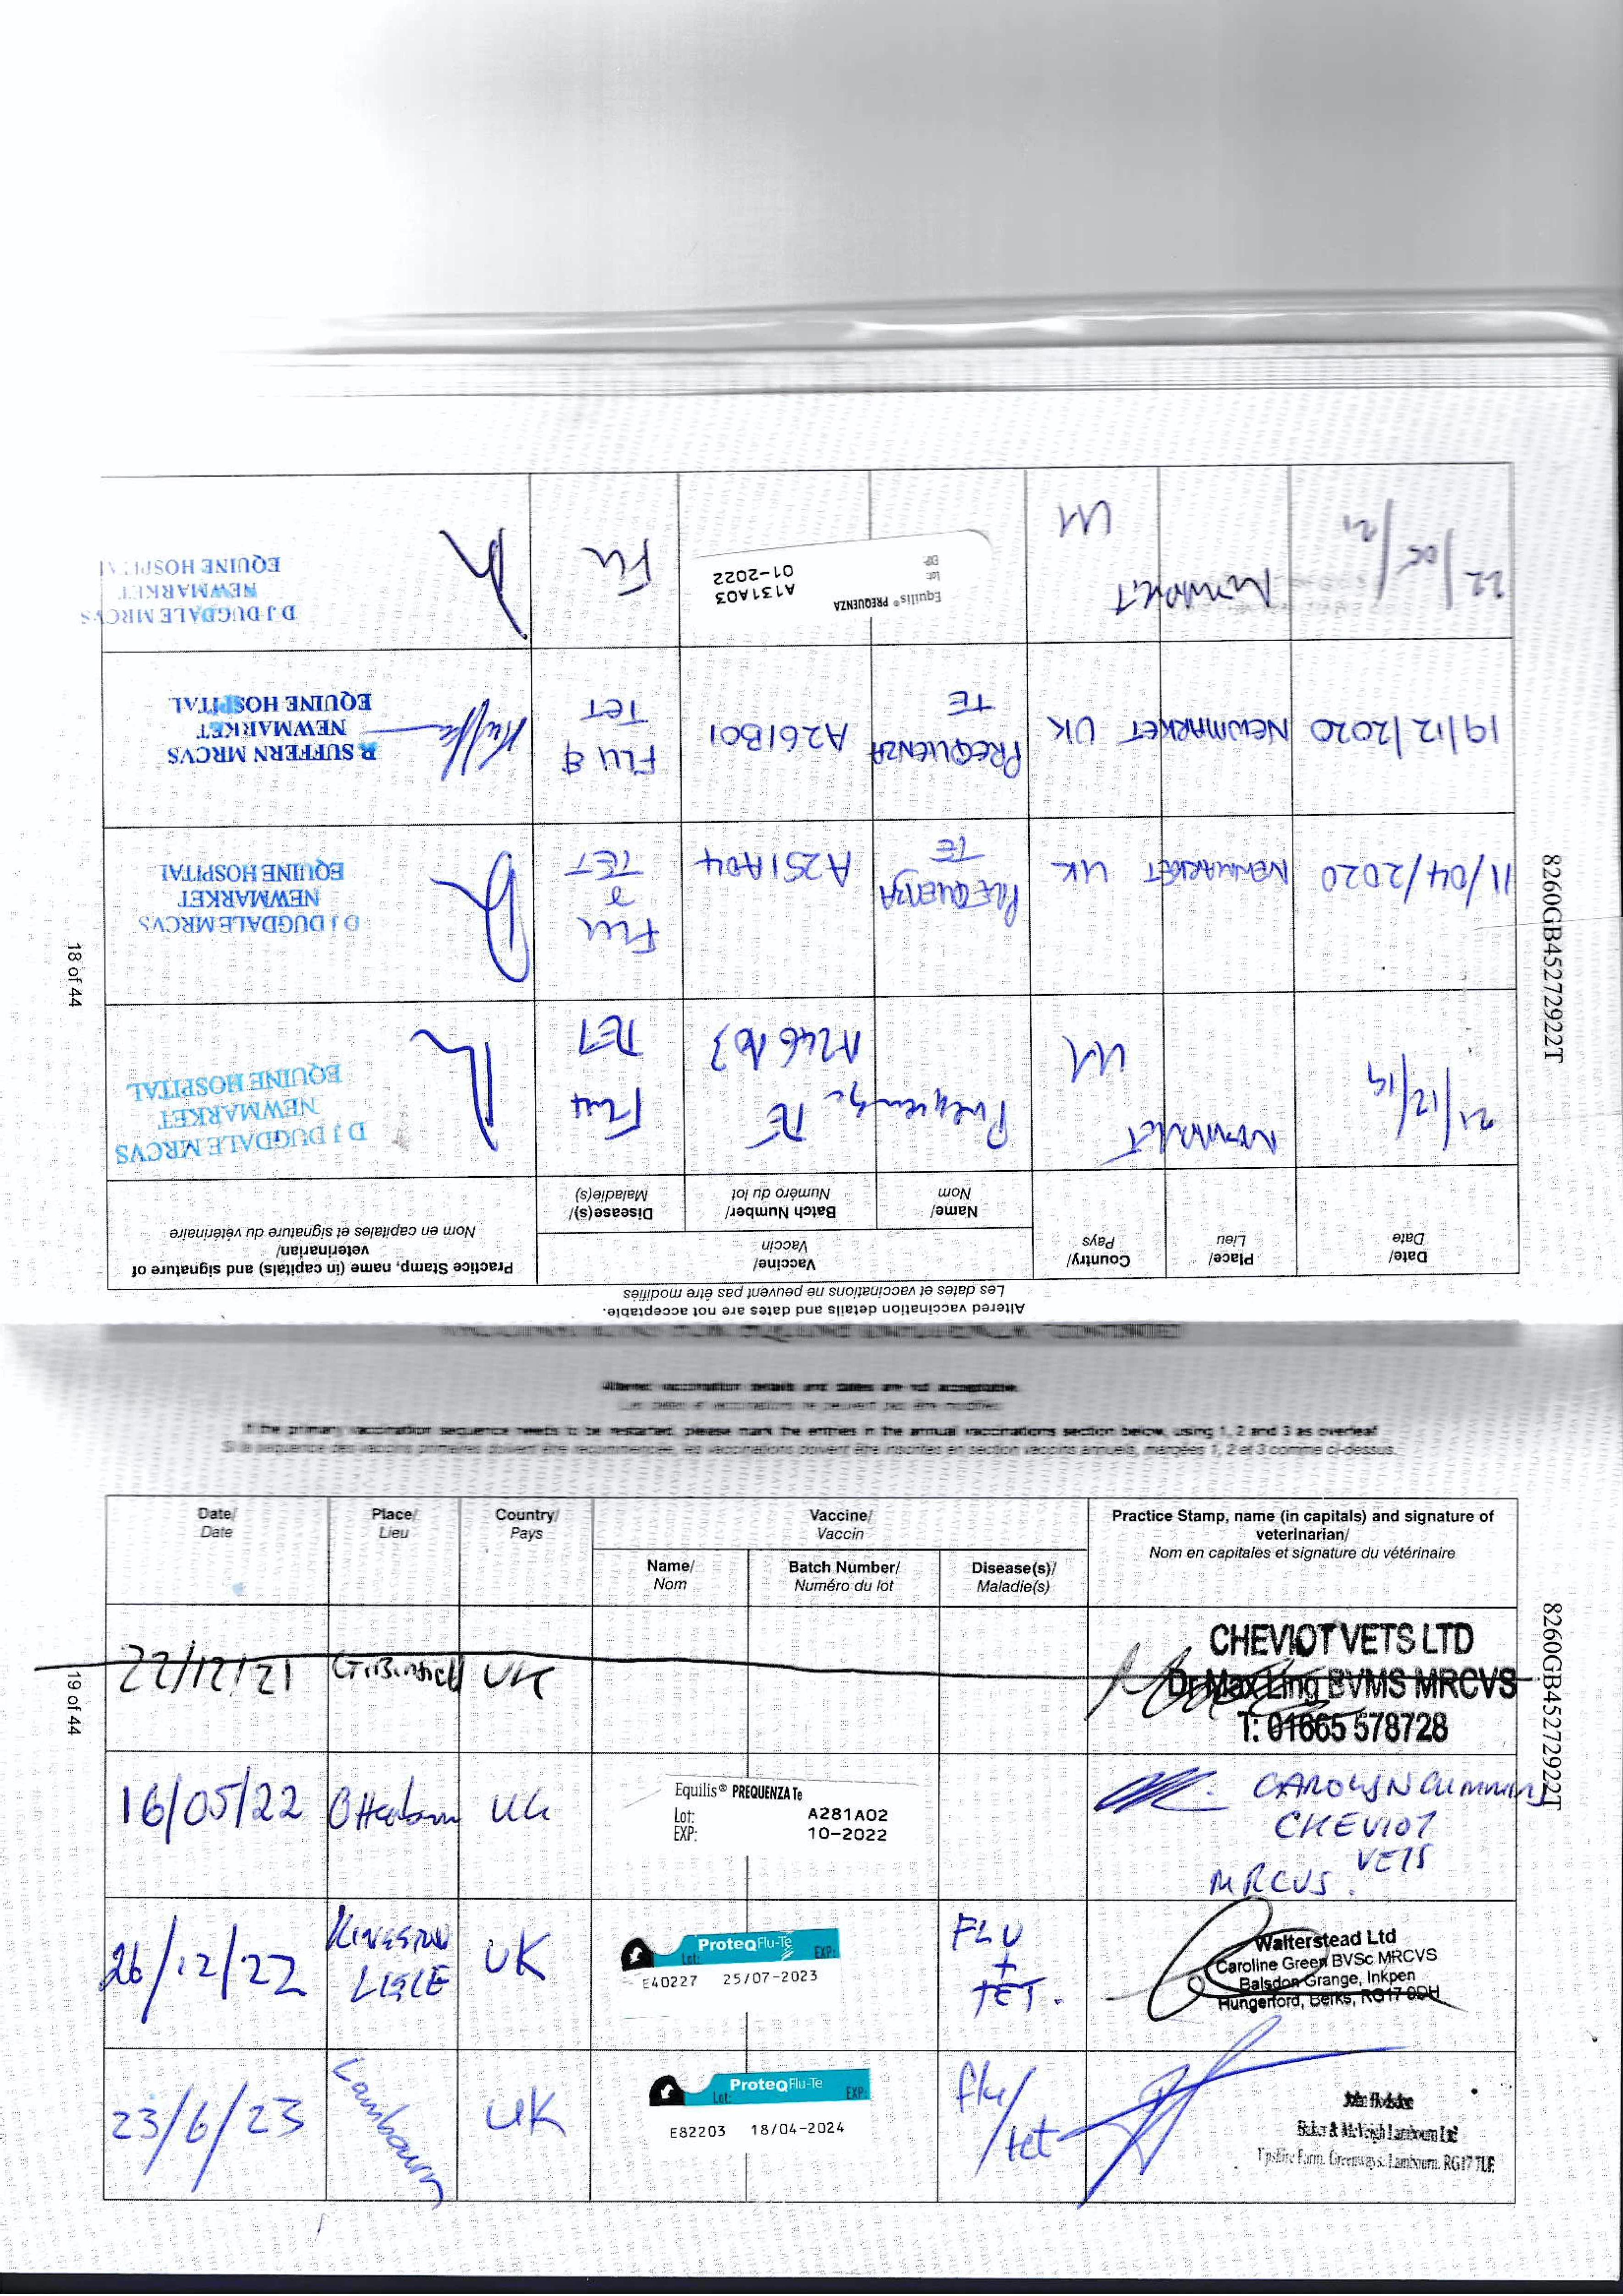 Altered vaccination details and dates are not acceptable.
Les dates et vaccinations ne peuvent pas être modifiés
Date/
Date
Place/
Lieu
Country/
Pays
Vaccine/
Vaccin
Name/
Nom
Batch Number/
Numéro du lot
Disease(s)/
Maladie(s)
Practice Stamp, name (in capitals) and signature of
veterinarian/
Nom en capitales et signature du vétérinaire
21/12/19
UK
TE
A246A03
Flu
TET
D J DUGDALE MRCVS
NEWMARKET
EQUINE HOSPITAL
11/04/2020 NEWMARKET UK
PREQUENZA
TE
A251A04
Flu
&
TET
D J DUGDALE MRCVS
NEWMARKET
EQUINE HOSPITAL
19/12/2020 NEWMARKET UK
PREQUENZA
TE
A261B01
FLU &
TET
R SUFFERN MRCVS
NEWMARKET
EQUINE HOSPITAL
22/05/21
UK
Equilis® PREQUENZA
Lot: A131A03
EXP: 01-2022
Flu
D J DUGDALE MRCVS
NEWMARKET
EQUINE HOSPITAL
18 of 44
8260GB45272922T
Altered vaccination details and dates are not acceptable.
Les dates et vaccinations ne peuvent pas être modifiés
If the primary vaccination sequence needs to be restarted, please mark the entries in the annual vaccinations section below, using 1, 2 and 3 as overleaf
Si la séquence des vaccins primaires doivent être recommencée, les vaccinations doivent être inscrites en section vaccins annuels, margées 1, 2 et 3 comme ci-dessus.
Date/
Date
Place/
Lieu
Country/
Pays
Vaccine/
Vaccin
Name/
Nom
Batch Number/
Numéro du lot
Disease(s)/
Maladie(s)
Practice Stamp, name (in capitals) and signature of
veterinarian/
Nom en capitales et signature du vétérinaire
22/12/21 UK
CHEVIOT VETS LTD
Dr Max Ling BVMS MRCVS
T: 01665 578728
16/05/22 Otterburn UK
Equilis® PREQUENZA Te
Lot: A281A02
EXP: 10-2022
CAROLYN CUMMING
CHEVIOT
VETS
MRCVS.
26/12/22
KINGSTON
LISLE
UK
ProteqFlu-Te
Lot: EXP:
E40227 25/07-2023
FLU
+
TET.
Walterstead Ltd
Caroline Green BVSc MRCVS
Balsdon Grange, Inkpen
Hungerford, Berks, RG17 9DH
23/6/23 Lambourn UK
ProteqFlu-Te
Lot: EXP:
E82203 18/04-2024
flu/
tet
Baker & McVeigh Lambourn Ltd
Upshire Farm, Greenways, Lambourn, RG17 7LE
19 of 44
8260GB45272922T